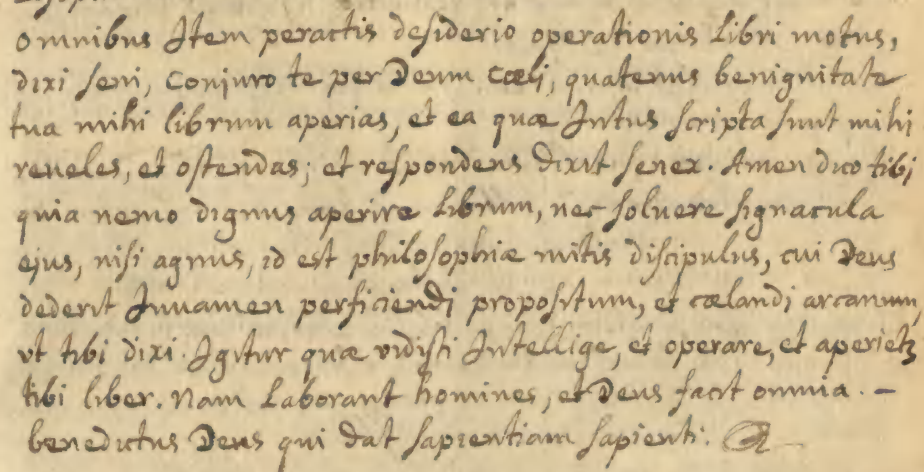 omnibus Item peractis desiderio operationis Libri motus,
dixi seni, Conjuro te per Deum Cæli, quatenus benignitate
tua mihi librum aperias, et ea quæ Intus scripta sunt mihi
reueles, et ostendas; et respondens dixit senex. Amen dico tibi,
quia nemo dignus aperire Librum, nec soluere signacula
ejus, nisi agnus, id est philosophiæ mitis discipulus, cui Deus
dederit Iuuamen perficiendi propositum, et cælandi arcanum,
vt tibi dixi. Igitur quæ vidisti Intellige, et operare, et aperietꝫ
tibi liber. Nam Laborant homines, et Deus facit omnia. –
benedictus Deus qui dat sapientiam sapienti.